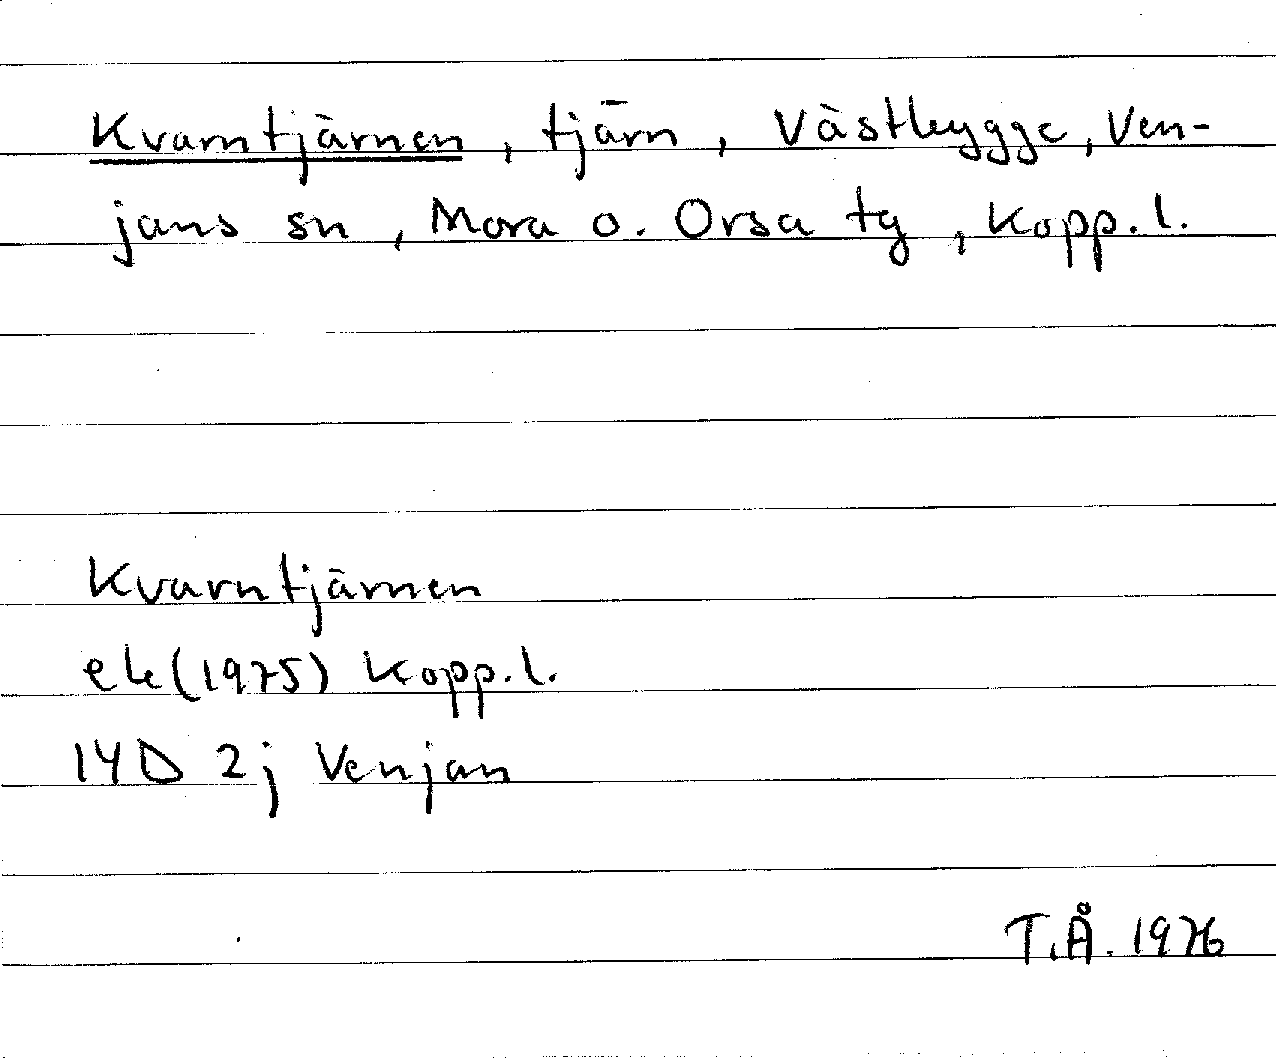 Kvarntjärnen, tjärn, Västbygge, Ven-
jans sn, Mora o. Orsa tg, Kopp. l.
Kvarntjärnen
ek (1975) Kopp. l.
14D 2j Venjan
T.Å. 1976